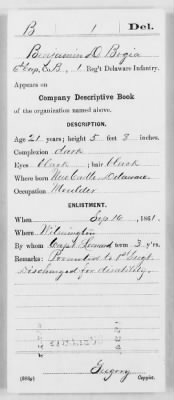 B 1 Del.
Benjamin D. Bogia
Corp, Co. B, 1 Reg't Delaware Infantry.
Appears on
Company Descriptive Book
of the organization named above.
DESCRIPTION.
Age 21 years; height 5 feet 8 inches.
Complexion dark
Eyes black; hair black
Where born New Castle Delaware
Occupation Moulder
ENLISTMENT.
When Sep 10, 1861.
Where Wilmington
By whom Capt Leonard term 3 y'rs.
Remarks: Promoted to 1st Sergt
Discharged for disability.
Gregory
Copyist.